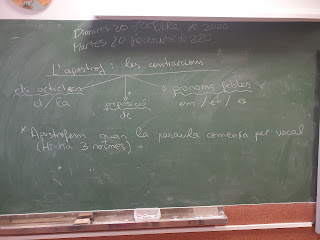 Dimarts 20 d'octubre de 2020
Martes 20 de octubre de 2020
L'apòstrof i les contraccions
els articles
el / la
preposició
de
pronoms febles
em / et / es
* Apostrofem quan la paraula comença per vocal
(Hi ha 3 normes)